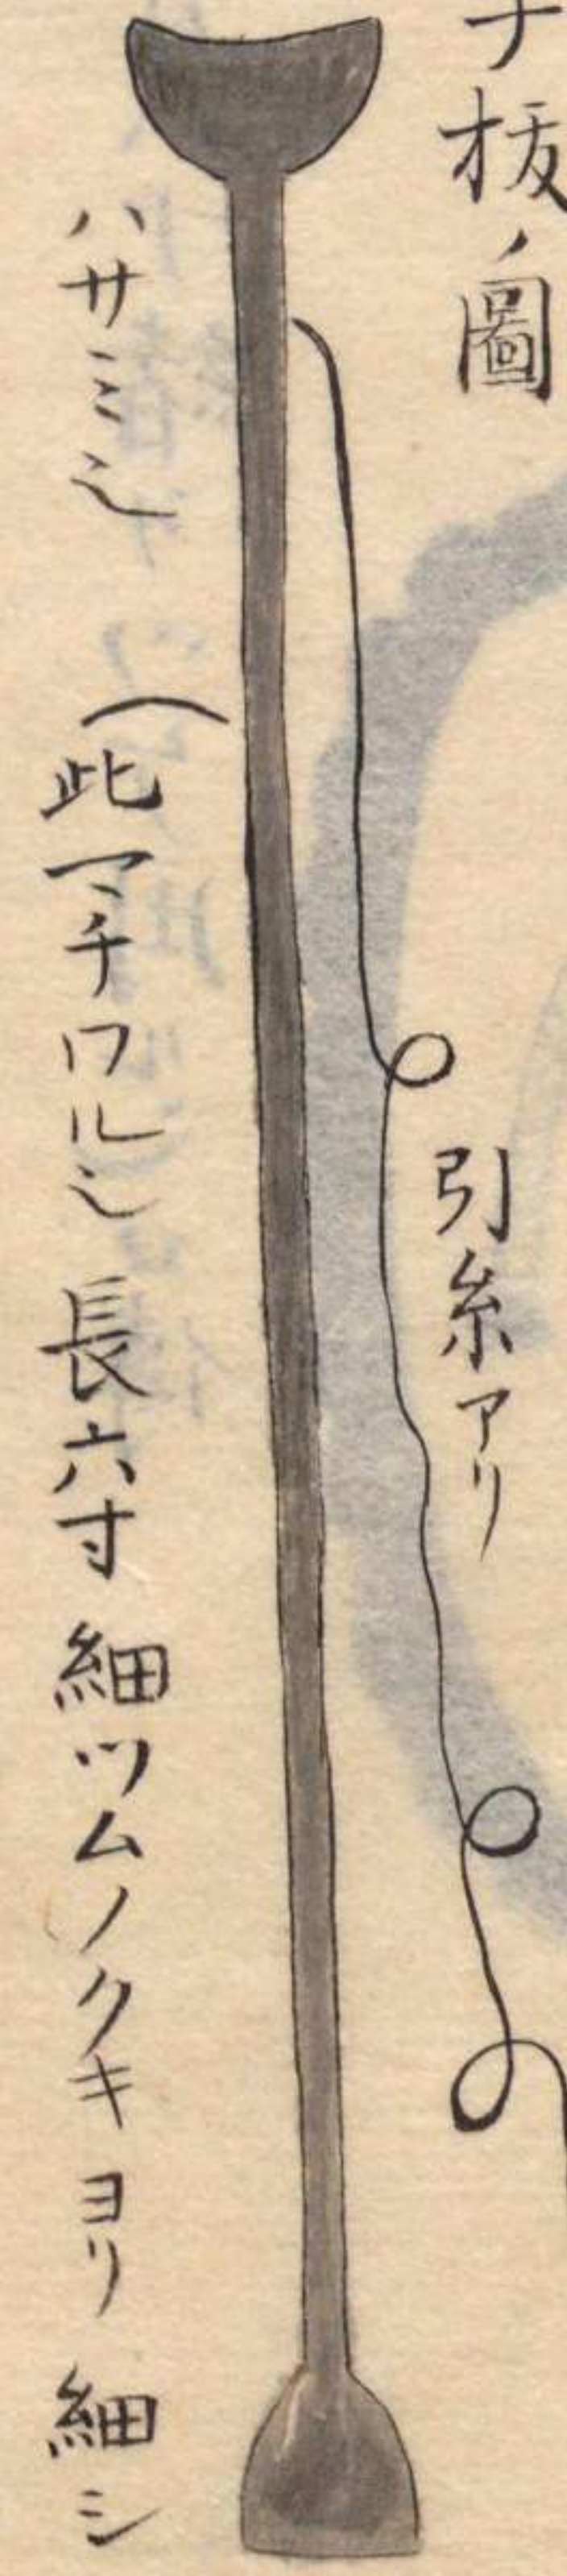 ナ抜ノ圖
引糸アリ
ハサミシ
此マチワルシ長六寸細ツムノクキヨリ細シ